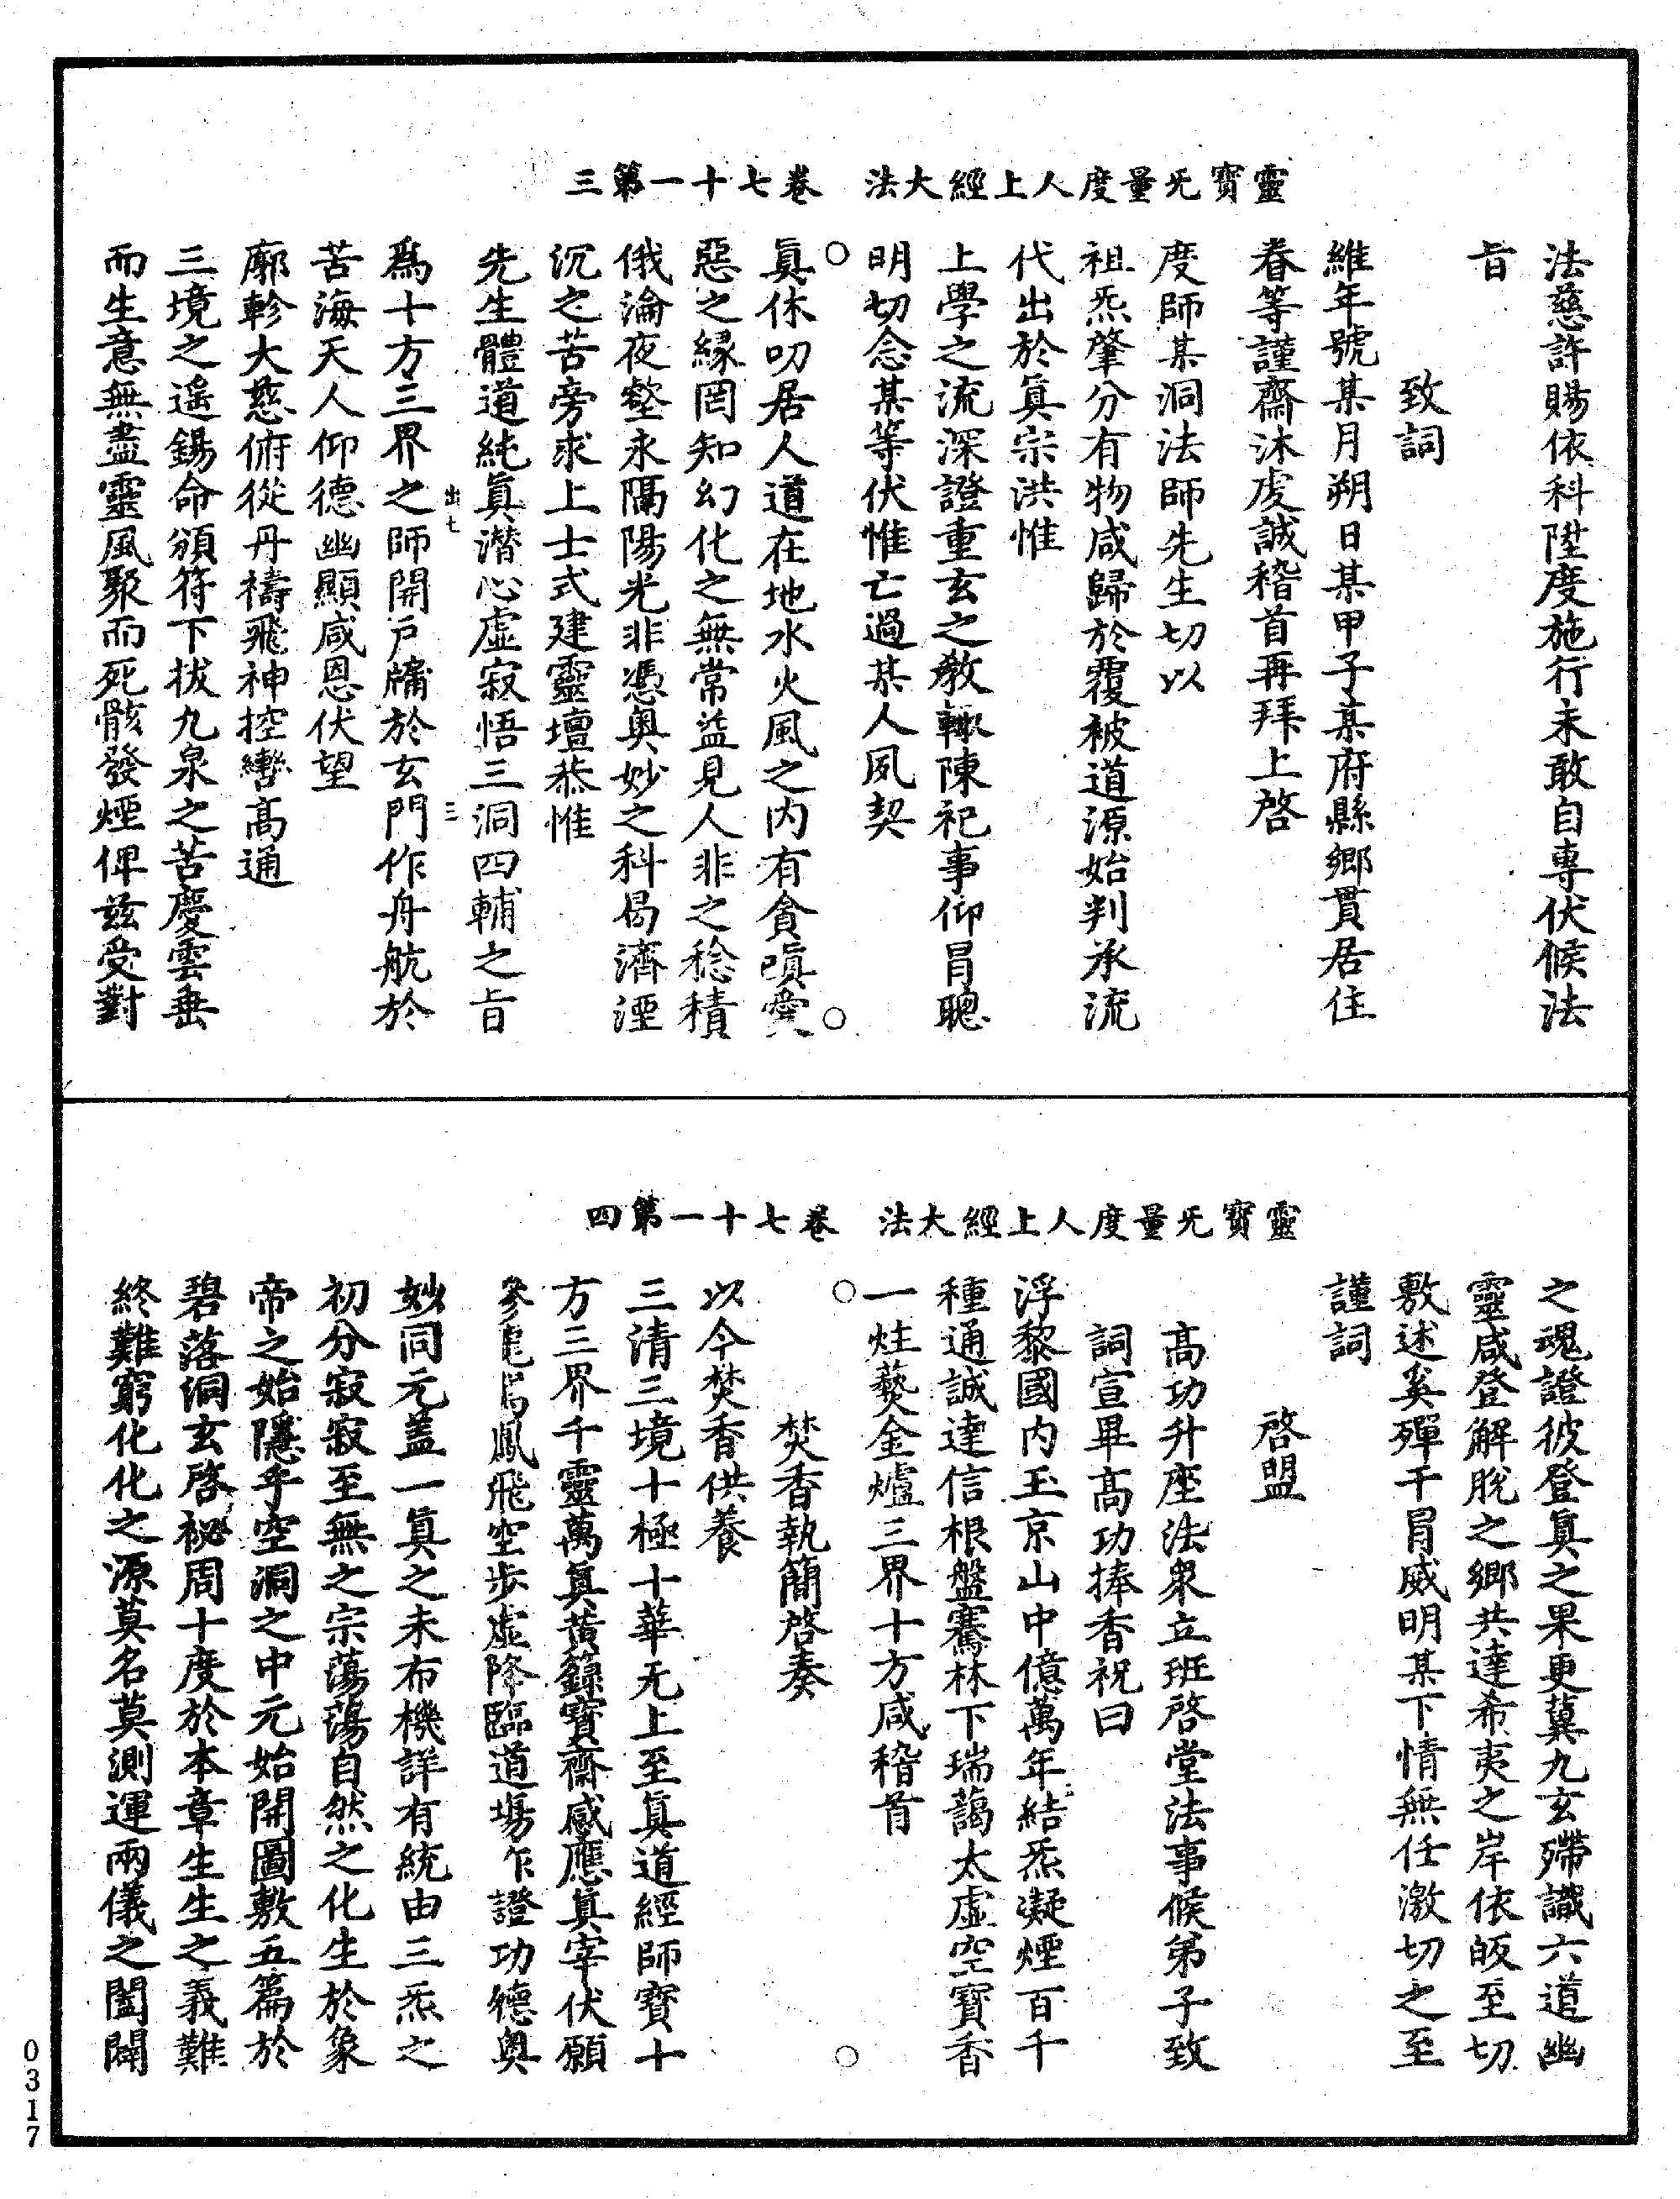 靈寶无量度人上經大法　卷七十一第三
法慈許賜依科陞度施行未敢自專伏候法
旨
致詞
維年號某月朔日某甲子某府縣鄉貫居住
眷等謹齋沐虔誠稽首再拜上啓
度師某洞法師先生切以
祖炁肇分有物咸歸於覆被道源始判承流
代出於眞宗洪惟
上學之流深證重玄之教輙陳祀事仰冐聰
明切念某等伏惟亡過某人夙契
眞休叨居人道在地水火風之内有貪嗔愛
惡之縁罔知幻化之無常益見人非之稔積
俄淪夜壑永隔陽光非憑奥妙之科曷濟湮
沉之苦旁求上士式建靈壇恭惟
先生體道純眞潛心虚寂悟三洞四輔之旨
出七　三
爲十方三界之師開戸牖於玄門作舟航於
苦海天人仰德幽顯咸恩伏望
廓軫大慈俯從丹禱飛神控轡髙通
三境之遥錫命頒符下拔九泉之苦慶雲垂
而生意無盡靈風聚而死骸發煙俾兹受對
靈寶无量度人上經大法　卷七十一第四
之魂證彼登眞之果更冀九玄殢識六道幽
靈咸登解脫之鄉共達希夷之岸依皈至切
敷述奚殫干冐威明某下情無任激切之至
謹詞
啓盟
髙功升座法衆立班啓堂法事候弟子致
詞宣畢髙功捧香祝曰
浮黎國内玉京山中億萬年結炁凝煙百千
種通誠達信根盤騫林下瑞藹太虚空寶香
一炷爇金爐三界十方咸稽首
焚香執簡啓奏
以今焚香供養
三清三境十極十華无上至眞道經師寶十
方三界千靈萬眞黄籙寶齋感應眞宰伏願
參鸞馬鳳飛空步虚降臨道場乍證功德奥
妙同元盖一眞之未布機詳有統由三炁之
初分寂寂至無之宗蕩蕩自然之化生於象
帝之始隱乎空洞之中元始開圖敷五篇於
碧落洞玄啓祕周十度於本章生生之義難
終難窮化化之源莫名莫測運兩儀之闔闢
0317